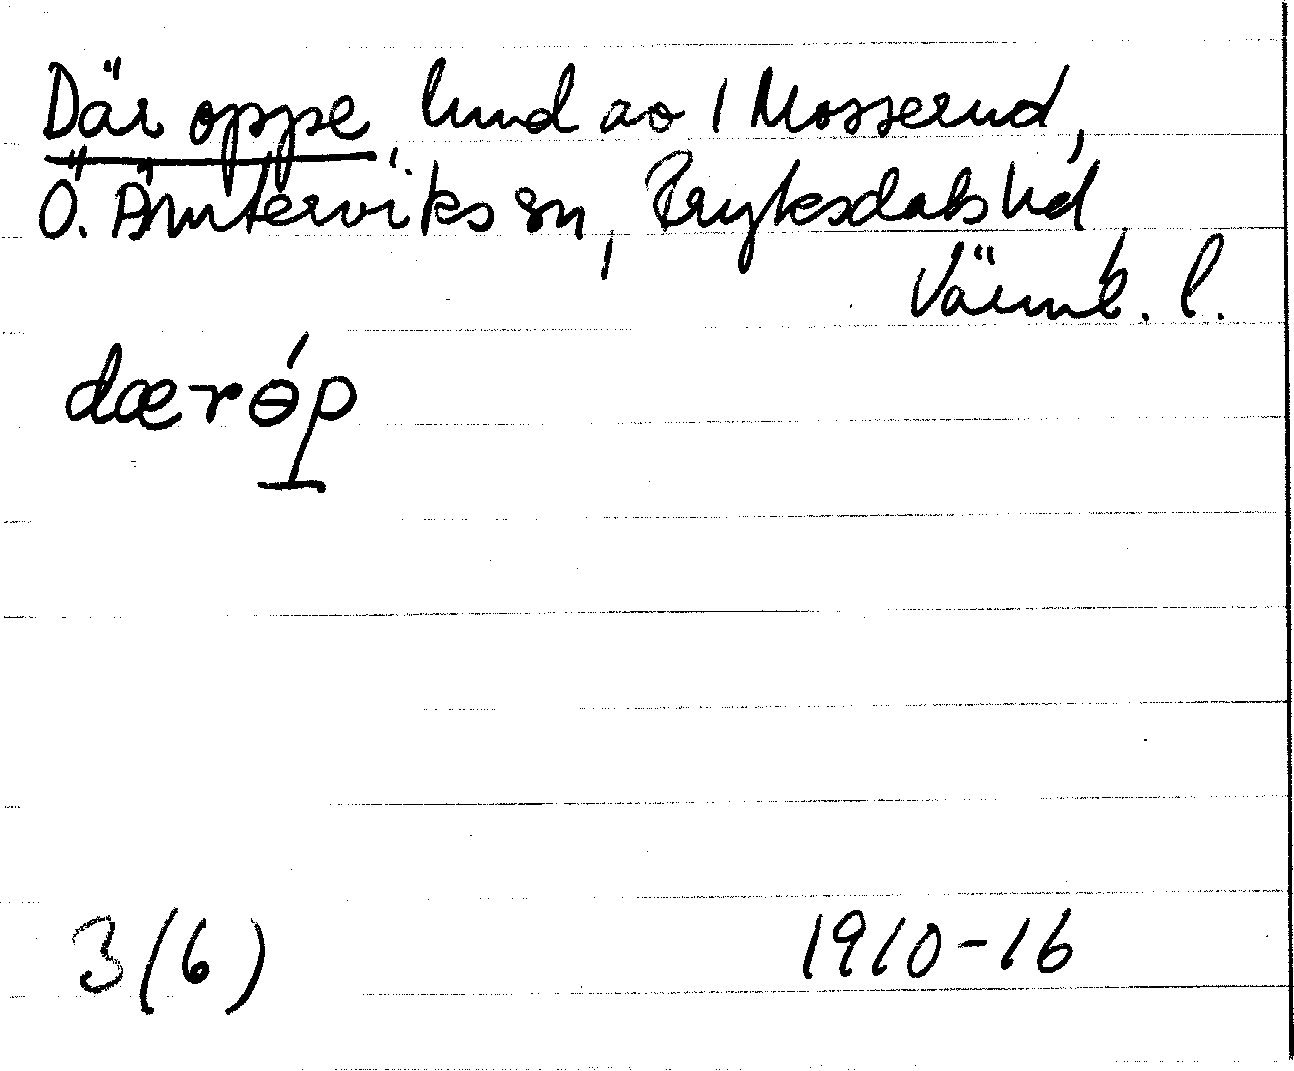 Där oppe, lund av 1 Mosserud,
Ö. Ämterviks sn, Fryksdals hd
Värml. l.
dærɵ́p
3(6) 1910-16